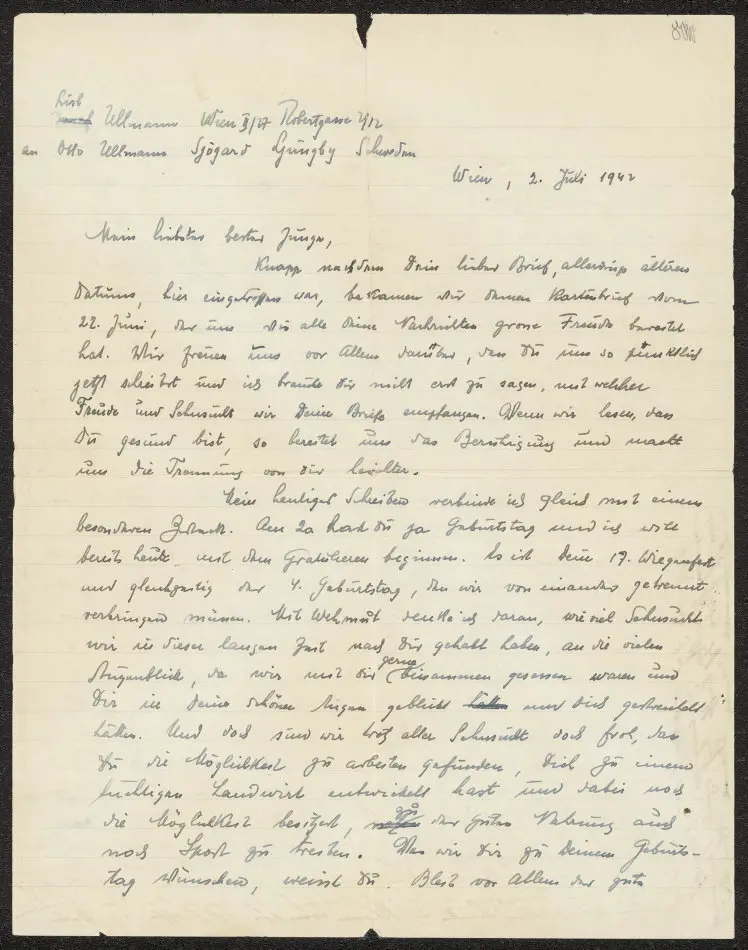 Lise
Ullmann Wien II/27 Robertgasse 2/12
an Otto Ullmann Sjögard Ljungby Schweden
Wien, 2. Juli 1942
Mein liebster bester Junge,
Knapp nachdem Dein lieber Brief, allerdings älteren
Datums, hier eingetroffen war, bekamen wir deinen Kartenbrief vom
22. Juni, der uns wie alle deine Nachrichten grosse Freude bereitet
hat. Wir freuen uns vor Allem darüber, dass Du uns so pünktlich
jetzt schreibst und ich brauche Dir nicht erst zu sagen, mit welcher
Freude und Sehnsucht wir Deine Briefe empfangen. Wenn wir lesen, dass
Du gesund bist, so bereitet uns das Beruhigung und macht
uns die Trennung von dir leichter.
Mein heutiges Schreiben verbinde ich gleich mit einem
besonderen Zweck. Am 20 hast du ja Geburtstag und ich will
bereits heute mit dem Gratulieren beginnen. Es ist Dein 17. Wiegenfest
und gleichzeitig der 4. Geburtstag, den wir von einander getrennt
verbringen müssen. Mit Wehmut denke ich daran, wie viel Sehnsucht
wir in dieser langen Zeit nach Dir gehabt haben, an die vielen
Augenblicke, da wir mit dir gerne beisammen gesessen wären und
Dir in Deine schönen Augen geblickt hätten und Dich gestreichelt
hätten. Und doch sind wir trotz aller Sehnsucht doch froh, dass
Du die Möglichkeit zu arbeiten gefunden, Dich zu einem
tüchtigen Landwirt entwickelt hast und dabei noch
die Möglichkeit besitzest, zu der guten Nahrung auch
noch Sport zu treiben. Was wir Dir zu Deinem Geburts-
tag wünschen, weisst Du. Bleib vor Allem der gute